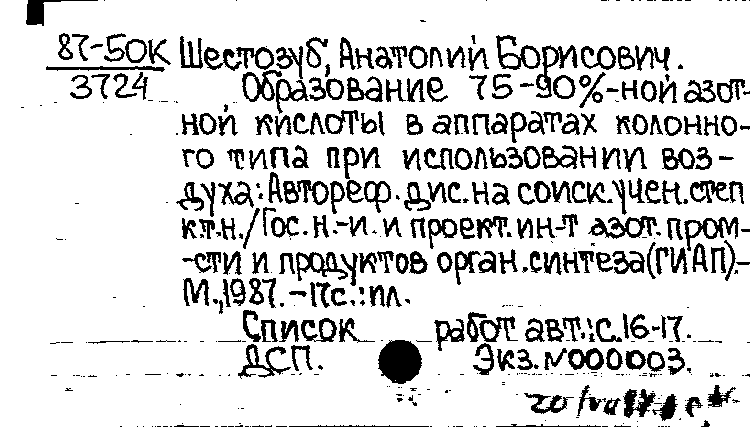 87-50К Шестозуб, Анатолий Борисович.
3724 Образование 75-90%-ной азот-
ной кислоты в аппаратах колонно-
го типа при использовании воз-
духа: Автореф. дис. на соиск. учен. степ
к.т.н. / Гос. н.-и. и проект. ин-т азот. пром-
-сти и продуктов орган. синтеза (ГИАП).-
М., 1987. -17с.: ил.
Список работ авт.: с. 16-17.
ДСП. Экз. N000003.